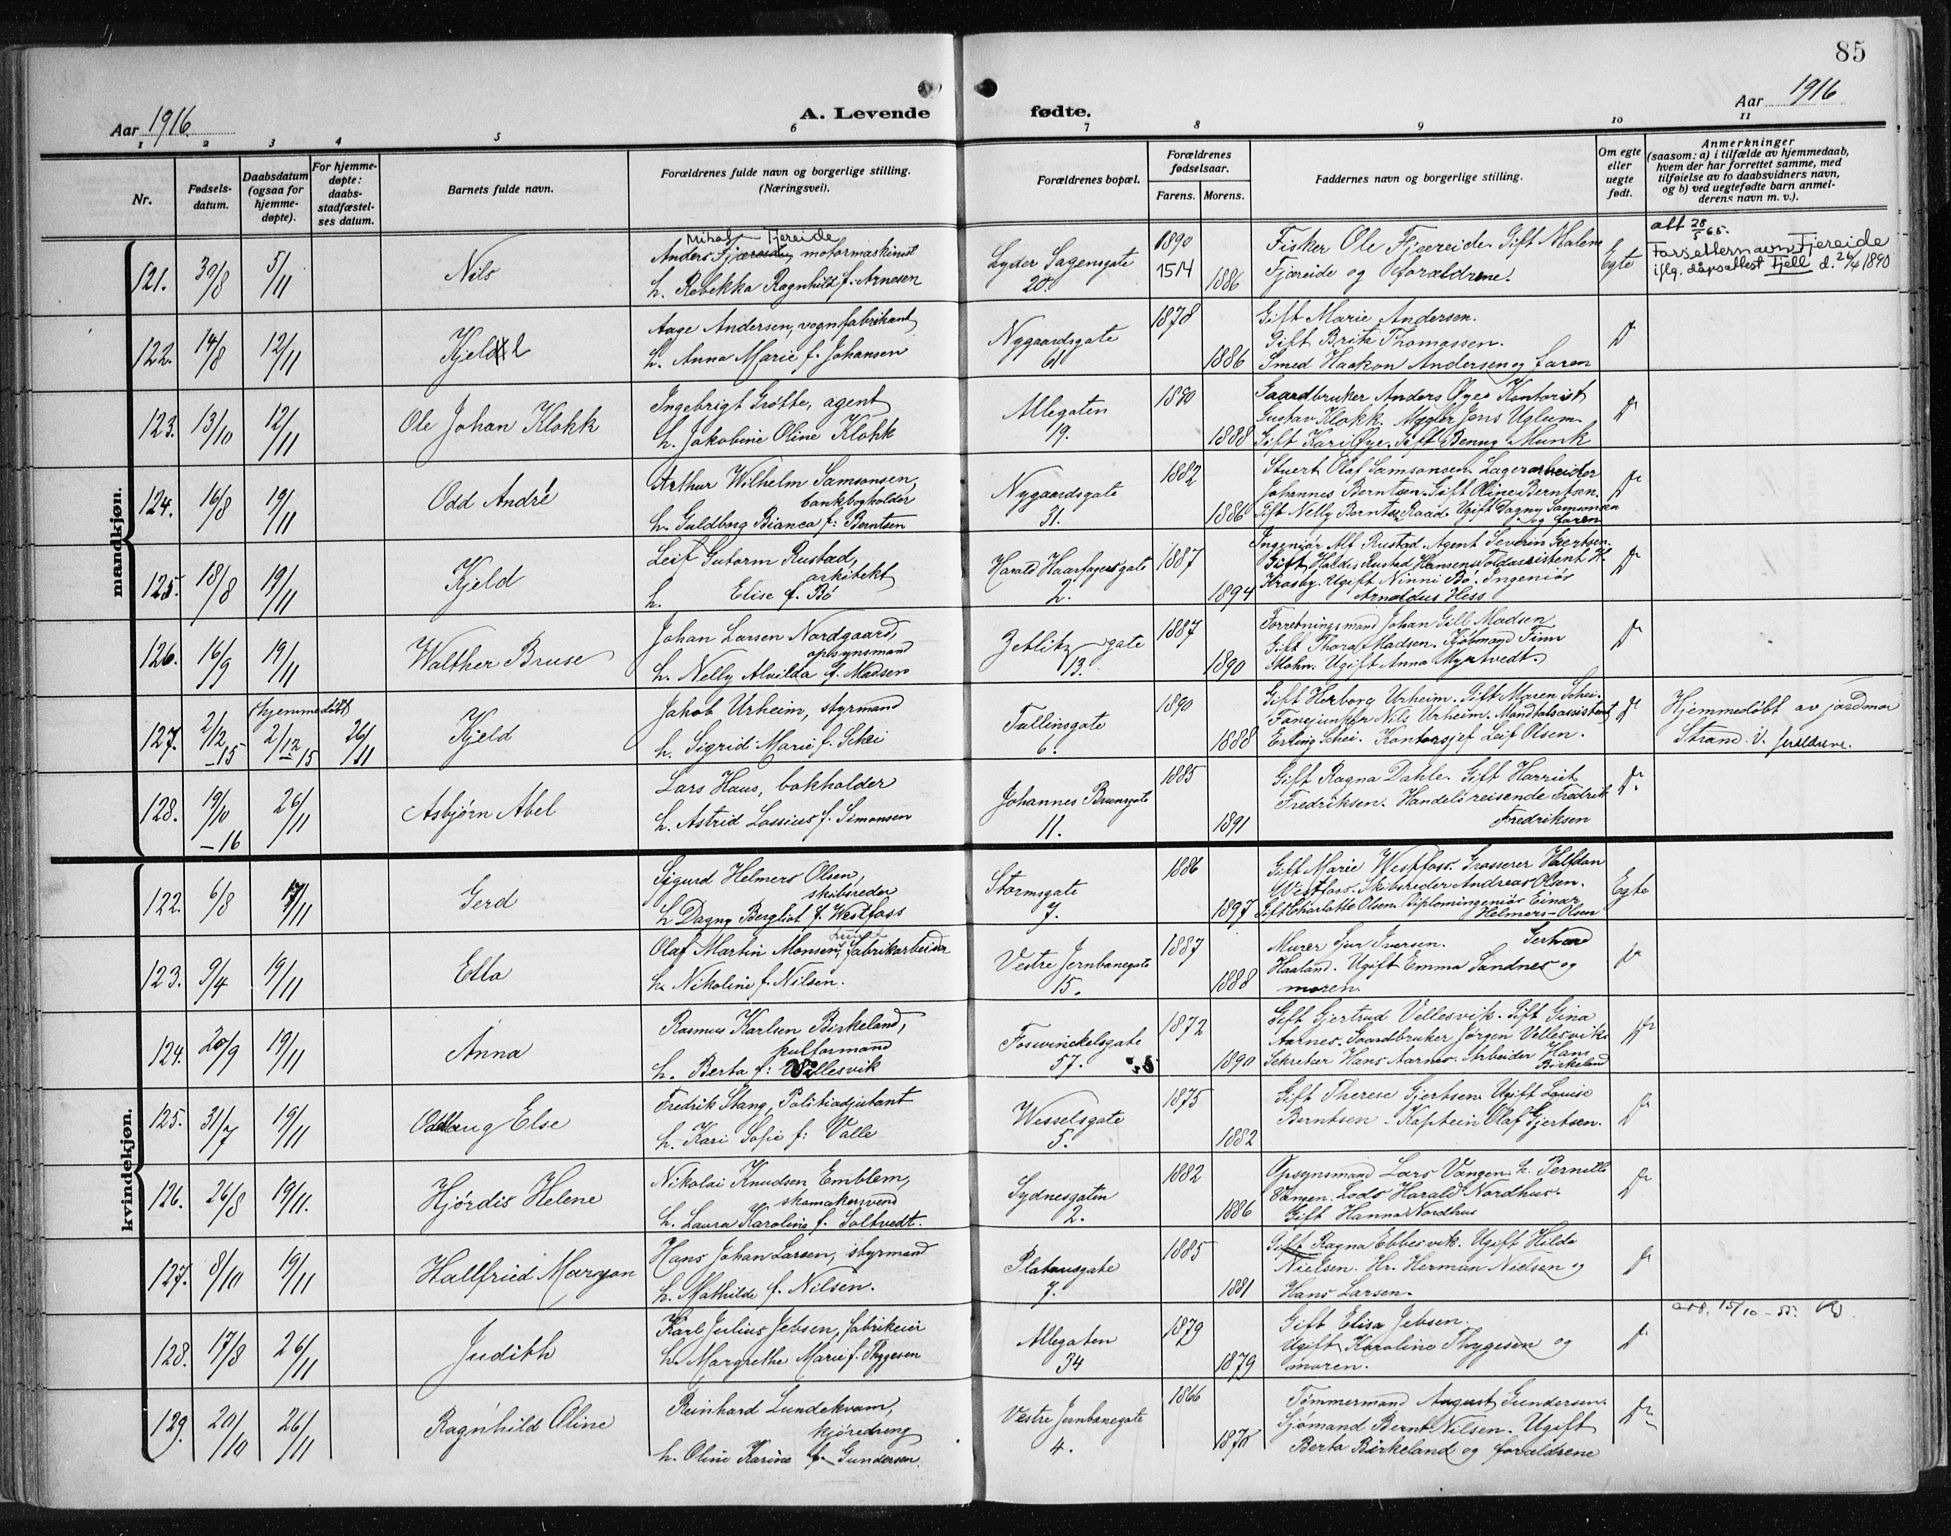 85
Aar 1916.
A. Levende fødte.
Aar 1916
1 2 3 4 5 6 7 8 9 10 11
Nr.
Fødsels-
datum.
Daabsdatum
(ogsaa for
hjemme-
døpte).
For hjemme-
døpte:
daabs-
stadfæstel-
ses datum.
Barnets fulde navn.
Forældrenes fulde navn og borgerlige stilling.
(Næringsvei).
Forældrenes bopæl.
Forældrenes
fødselsaar.
Farens. Morens.
Faddernes navn og borgerlige stilling.
Om egte
eller
uegte
født.
Anmerkninger
(saasom: a) i tilfælde av hjemmedaab,
hvem der har forrettet samme, med
tilføielse av to daabsvidners navn,
og b) ved uegtefødte barn anmel-
derens navn m. v.).
mandkjøn.
121. 30/8 5/11 Nils
Mikal Fjereide
Anders Fjæreide, motormaskinist
h. Rebekka Ragnhild f. Arnesen
Lyder Sagensgate
20.
1890
15/4
1886
Fisker Ole Fjereide. Gift Malene
Fjæreide og forældrene.
Egte
att 28/5 65.
Farsetternavn Fjereide
iflg. dåpsattest Fjell d. 26/4 1890
122. 14/8 12/11 Kjell
Aage Andersen, vognfabrikant
h. Anna Marie f. Johansen
Nygaardsgate
61
1878
1886
Gift Marie Andersen.
Gift Brita Thomassen.
Smed Haakon Andersen og faren
123. 13/10 12/11 Ole Johan Klokk
Ingebrigt Grøtte, agent
h. Jakobine Oline Klokk
Allegaten
19.
1880
1888
Gaardbruker Anders Øye. Kontorist
Gustav Klokk. Mægler Jens Uglum.
Gift Kari Øye. Gift Benny Munk
124. 16/8 19/11 Odd André
Arthur Wilhelm Samsonsen,
bankbogholder
h. Guldborg Bianca f: Berntsen
Nygaardsgate
31.
1882
1886
Stuert Olaf Samsonsen. Lagerarbeider
Johannes Berntsen. Gift Oline Berntsen.
Gift Nelly Berntsen Raad. Ugift Dagny Samsonsen
og faren
125. 18/8 19/11 Kjeld
Leif Gutorm Rustad,
arkitekt
h. Elise f. Bø
Harald Haarfagersgate
2.
1887
1894
Ingeniør Alf Rustad. Agent Severin Gjertsen.
Gift Haldis Rustad Hansen. Toldassistent H.
Krasby. Ugift Ninni Bø. Ingeniør
Arnoldus Hess
126. 16/9 19/11 Walther Bruse
Johan Larsen Nordgaard,
opsynsmand
h. Nelly Alvilda f. Madsen
Zetlitzgate
13.
1887
1890
Forretningsmand Johan Gill Madsen
Gift Thora Madsen. Kjøbmand Finn
Mohn. Ugift Anna Myrtvedt.
127. 2/12 -15 (hjemmedøbt) 2/12 15 26/11 Kjeld
Jakob Urheim, styrmand
h. Sigrid Marie f. Schei
Tullinsgate
6.
1890
1888
Gift Herborg Urheim. Gift Maren Schei.
Fanejunker Nils Urheim. Mandtalsassistent
Erling Schei. Kontorsjef Leif Olsen.
Hjemmedøbt av jordmor
Strand. V. forældrene.
128. 19/10 -16 26/11 Asbjørn Abel
Lars Haus, bokholder
h. Astrid Lossius f. Simonsen
Johannes Brunsgate
11.
1885
1891
Gift Ragna Dahle. Gift Harriet
Fredriksen. Handelsreisende Fredrik
Fredriksen
kvindekjøn.
122. 6/8 17/11 Gerd
Sigurd Helmers Olsen,
skibsreder
h. Dagny Bergliot f. Westfoss
Stormsgate
7.
1886
1897
Gift Marie Westfoss. Grosserer Halfdan
Westfoss. Skibsreder Andreas Olsen.
Gift Charlotte Olsen. Diplomingeniør Einar
Helmers-Olsen
Egte
123. 9/4 19/11 Ella
Olaf Martin Monsen, fabrikarbeider
h. Nikoline f. Nilsen.
Vestre Jernbanegate
15.
1887
1888
Murer Gur Iversen. Gertrud
Haaland. Ugift Emma Sandnes og
moren.
124. 20/9 19/11 Anna
Rasmus Karlsen Birkeland,
kulformand
h. Berta f: Vellesvik
Fosswinckelsgate
57.
1872
1890
Gift Gjertrud Vellesvik. Gift Gina
Aarnes. Gaardbruker Jørgen Vellesvik.
Sekretær Hans Aarnes. Arbeider Hans
Birkeland
125. 31/7 19/11 Oddlaug Else
Fredrik Stang, Politiadjutant
h. Kari Sofie f: Valle
Wesselsgate
5.
1875
1882
Gift Therese Gjertsen. Ugift Louise
Berntsen. Kaptein Olaf Gjertsen.
126. 26/8 19/11. Hjørdis Helene
Nikolai Knudsen Emblem,
skomakersvend
h. Laura Karoline f. Soltvedt.
Sydnesgaten
2.
1882
1886
Opsynsmand Lars Vangen. h. Pernille
Vangen. Lods Harald Nordhus.
Gift Hanna Nordhus
127. 8/10 19/11 Hallfried Margon
Hans Johan Larsen, styrmand
h. Mathilde f. Nilsen.
Platousgate
7.
1885
1881
Gift Ragna Ebbesvik. Ugift Hilda
Nielsen. Hr. Herman Nielsen og
Hans Larsen.
128. 17/8 26/11 Judith
Karl Julius Jebsen, fabrikeier
h. Margrethe Marie f. Thygesen
Allegaten
34
1879
1879
Gift Elisa Jebsen.
Ugift Karoline Thygesen og
moren.
att. 15/10-55.
129. 20/10 26/11 Ragnhild Oline
Reinhard Lundekvam,
kjøredreng
h. Oline Karine f. Gundersen.
Vestre Jernbanegate
4.
1866
1875
Tømmermand August Gundersen.
Sjømand Bernt Nilsen. Ugift
Berta Birkeland og forældrene